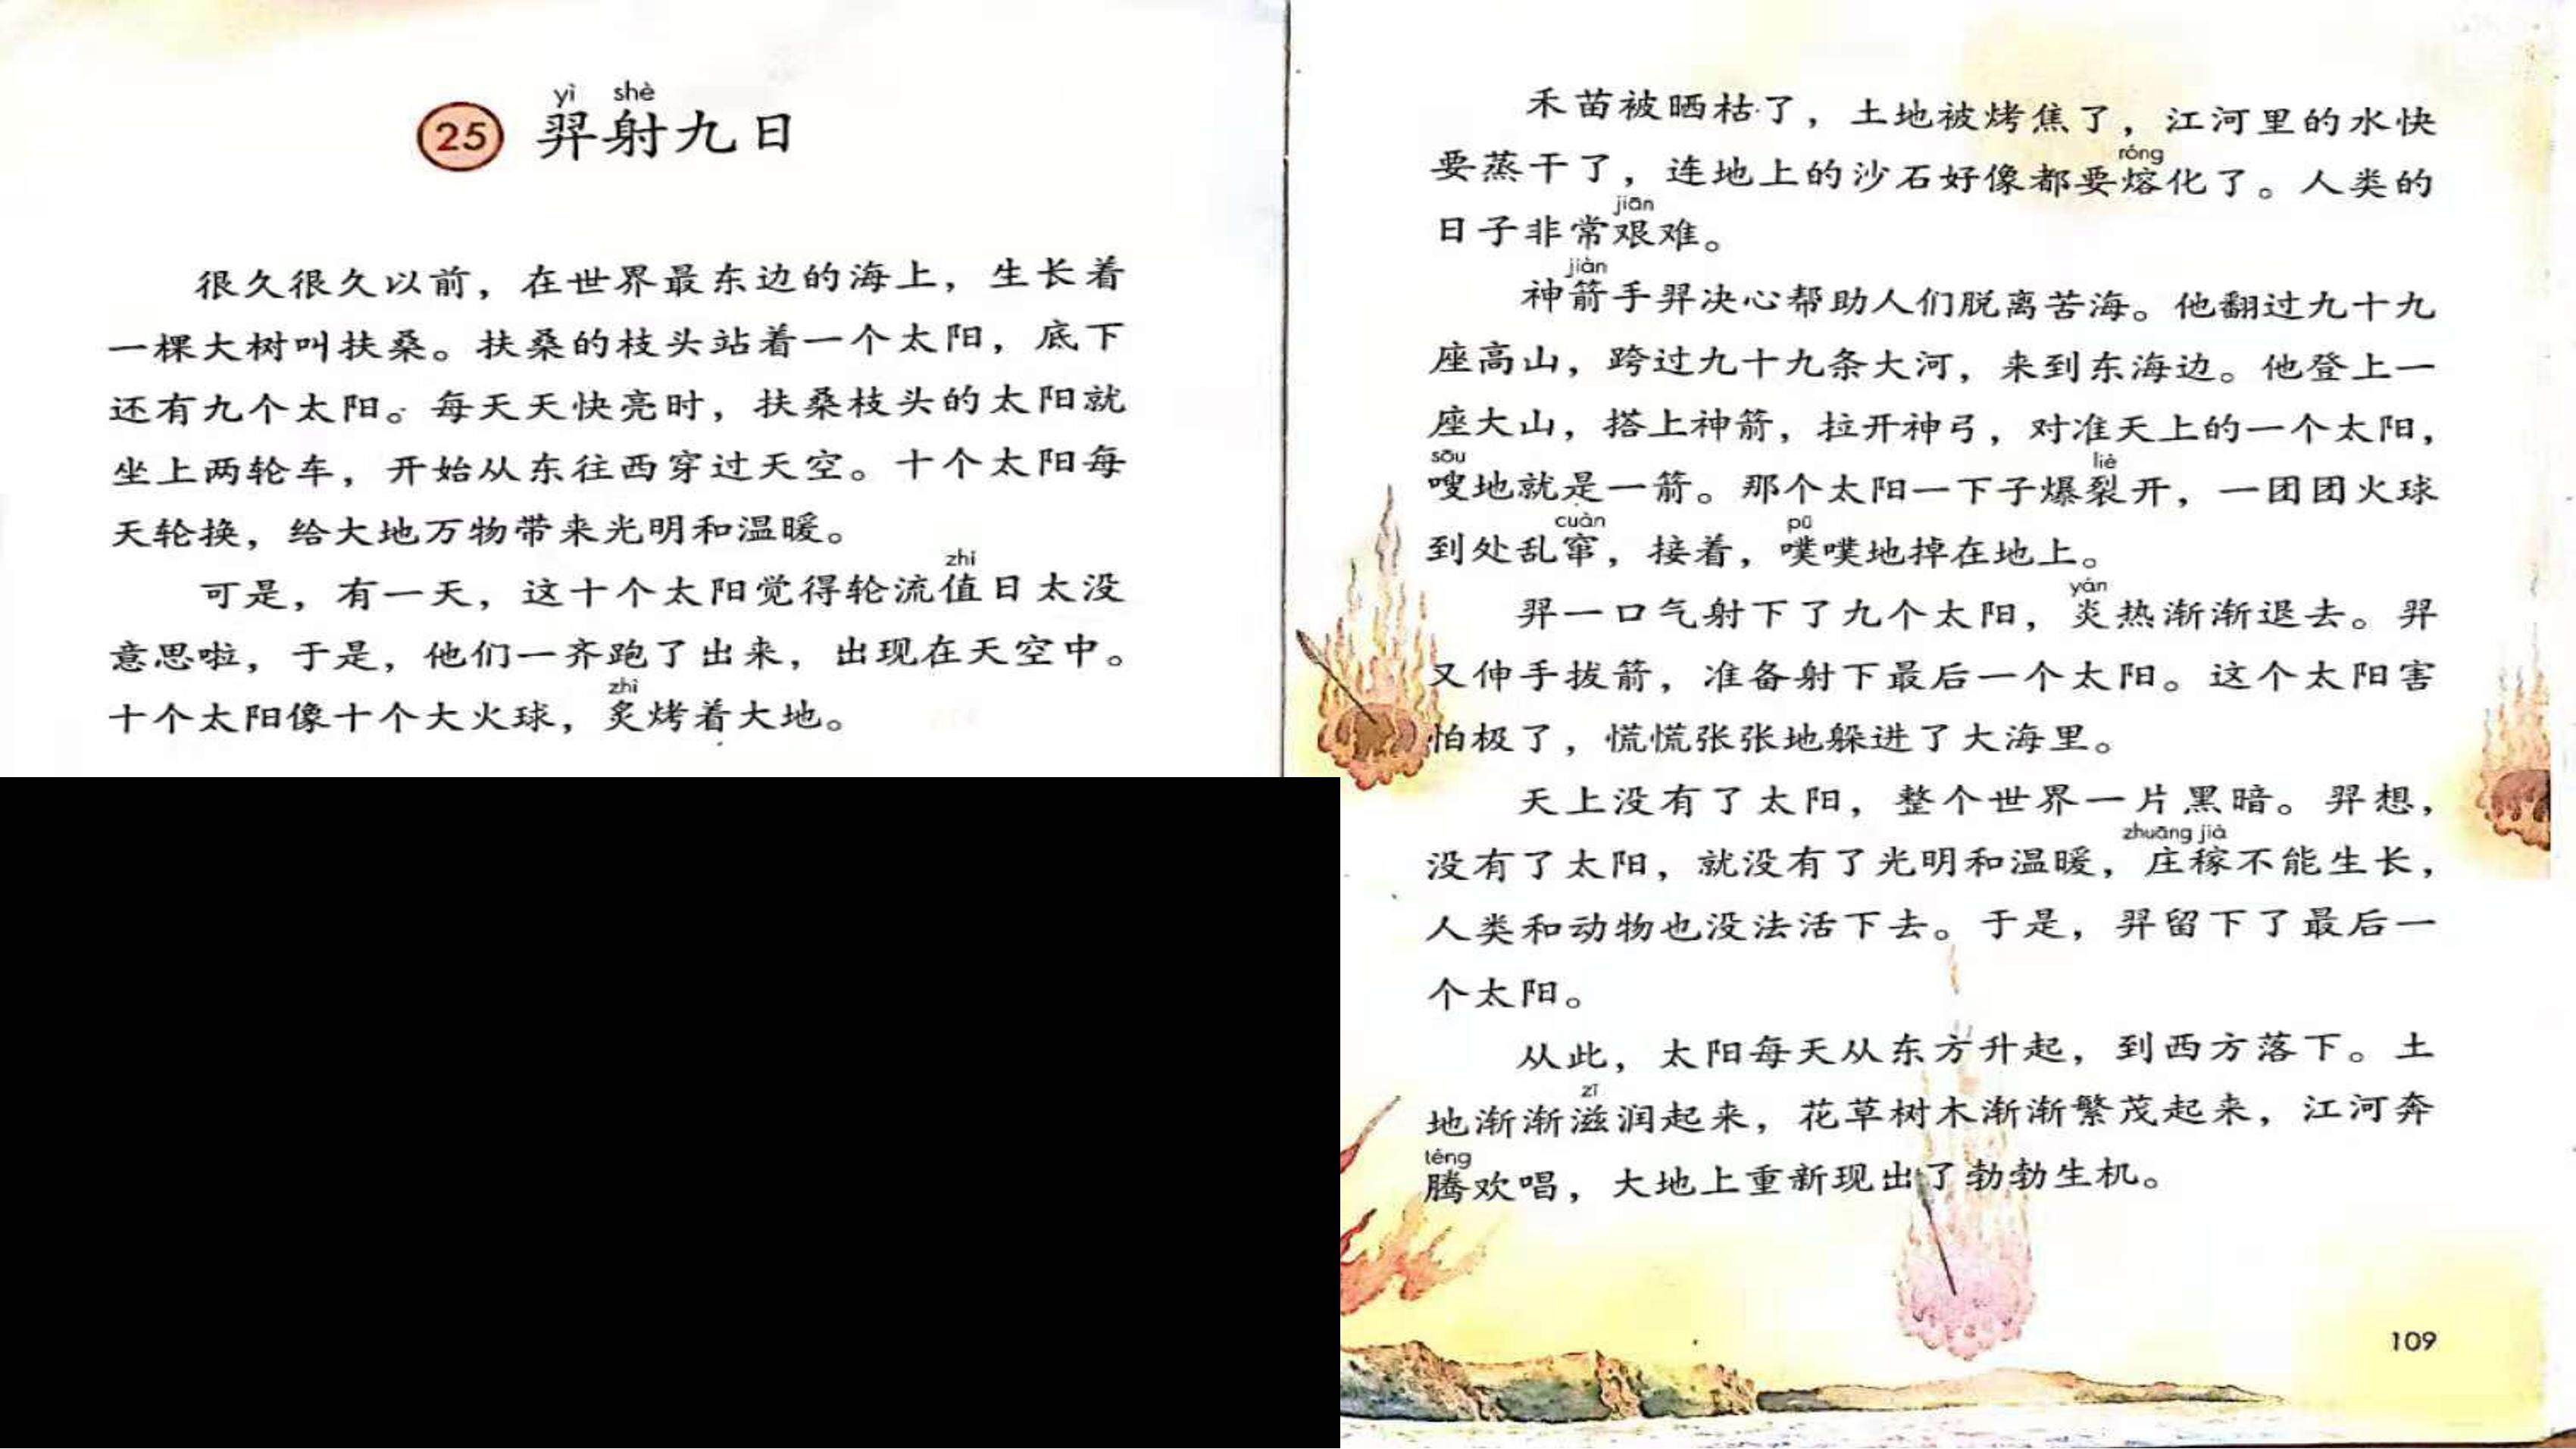 yì shè
25 羿射九日
很久很久以前，在世界最东边的海上，生长着
一棵大树叫扶桑。扶桑的枝头站着一个太阳，底下
还有九个太阳。每天天快亮时，扶桑枝头的太阳就
坐上两轮车，开始从东往西穿过天空。十个太阳每
天轮换，给大地万物带来光明和温暖。
zhí
可是，有一天，这十个太阳觉得轮流值日太没
意思啦，于是，他们一齐跑了出来，出现在天空中。
zhì
十个太阳像十个大火球，炙烤着大地。
禾苗被晒枯了，土地被烤焦了，江河里的水快
róng
要蒸干了，连地上的沙石好像都要熔化了。人类的
jiān
日子非常艰难。
jiàn
神箭手羿决心帮助人们脱离苦海。他翻过九十九
座高山，跨过九十九条大河，来到东海边。他登上一
座大山，搭上神箭，拉开神弓，对准天上的一个太阳，
sōu liè
嗖地就是一箭。那个太阳一下子爆裂开，一团团火球
cuàn pū
到处乱窜，接着，噗噗地掉在地上。
yán
羿一口气射下了九个太阳，炎热渐渐退去。羿
又伸手拔箭，准备射下最后一个太阳。这个太阳害
怕极了，慌慌张张地躲进了大海里。
天上没有了太阳，整个世界一片黑暗。羿想，
zhuāng jià
没有了太阳，就没有了光明和温暖，庄稼不能生长，
人类和动物也没法活下去。于是，羿留下了最后一
个太阳。
从此，太阳每天从东方升起，到西方落下。土
zī
地渐渐滋润起来，花草树木渐渐繁茂起来，江河奔
téng
腾欢唱，大地上重新现出了勃勃生机。
109